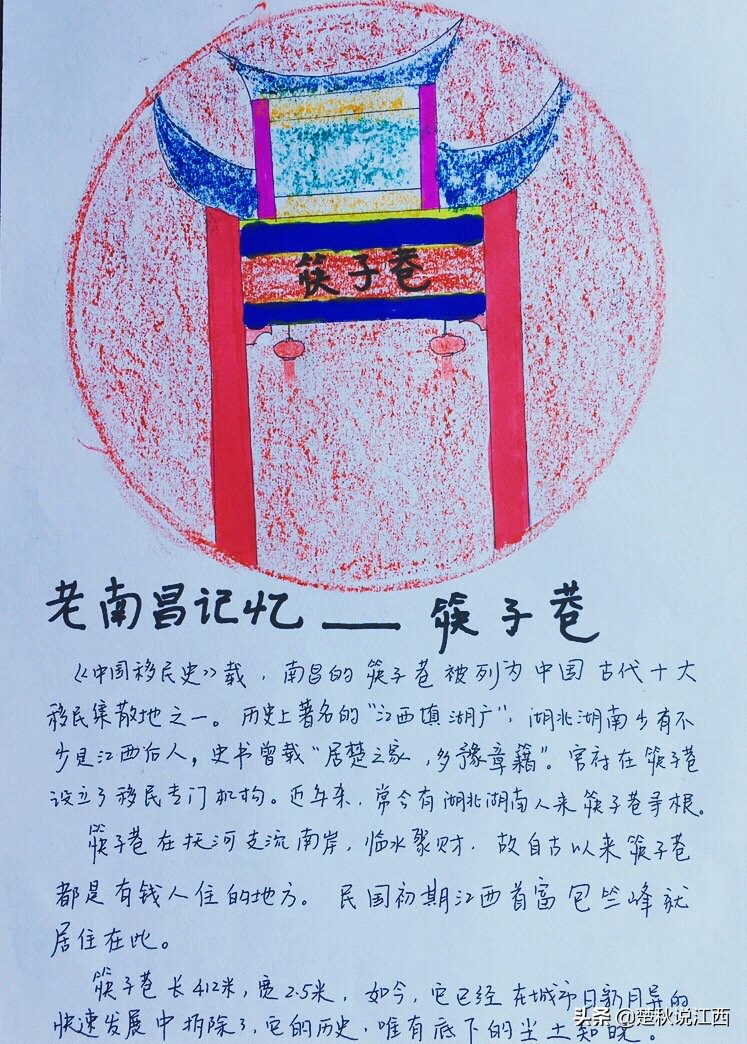 筷子巷
老南昌记忆——筷子巷
《中国移民史》载，南昌的筷子巷被列为中国古代十大
移民集散地之一。历史上著名的“江西填湖广”，湖北湖南少有不
少是江西后人，史书曾载“居楚之家，多豫章籍”。官府在筷子巷
设立了移民专门机构。近年来，常会有湖北湖南人来筷子巷寻根。
筷子巷在抚河支流南岸，临水聚财，故自古以来筷子巷
都是有钱人住的地方。民国初期江西首富包竺峰就
居住在此。
筷子巷长412米，宽2.5米，如今，它已经在城市日新月异的
快速发展中拆除了，它的历史，唯有底下的尘土知晓。
头条 @楚秋说江西